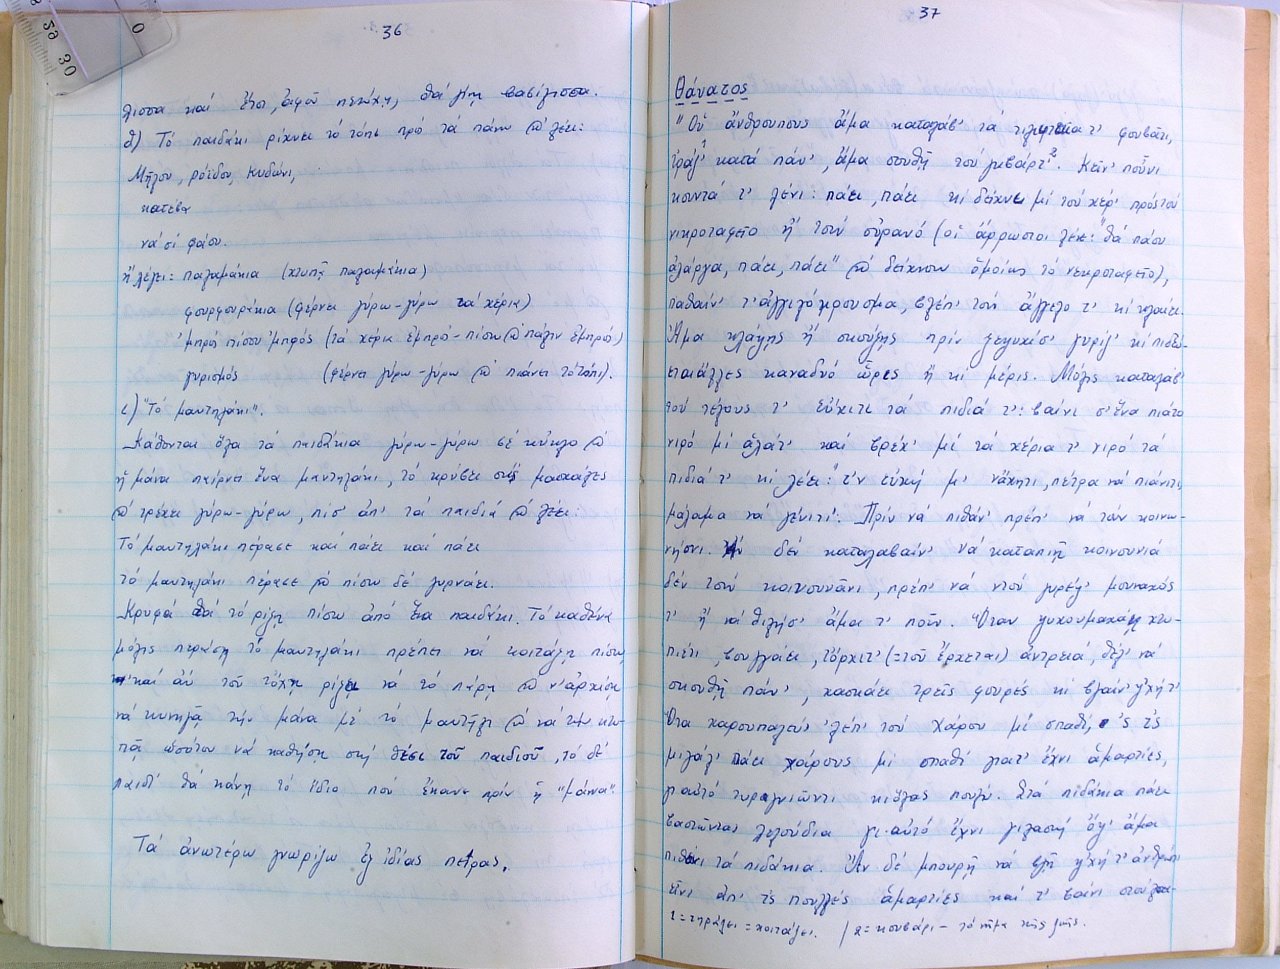 36
λισσα καί ἔτσι, ἀφοῦ πετύχη, θά γίνη βασίλισσα.
δ) Τό παιδάκι ρίχνει τό τόπι πρό τά πάνω κ' λέει:
Μῆλου, ρόιδου, κυδώνι,
κατέβα
νά σί φάου.
ἤ λέγει: παλαμάκια (κτυπᾶ παλαμάκια)
φουρφουράκια (φέρνει γύρω-γύρω τά χέρια)
'μπρός πίσου 'μπρός (τά χέρια ἐμπρό-πίσω κ' πάλιν ἐμπρός)
γυρισμός (φέρνει γύρω-γύρω κ' πιάνει τό τόπι).
ε) "Τό μαντηλάκι".
Κάθονται ὅλα τά παιδάκια γύρω-γύρω σέ κύκλο κ'
ἡ μάνα παίρνει ἕνα μαντηλάκι, τό κρύβει στίς μασχάλες
κ' τρέχει γύρω-γύρω, πίσ' ἀπ' τά παιδιά κ' λέει:
Τό μαντηλάκι πέρασε καί πάει καί πάει
τό μαντηλάκι πέρασε κ' πίσω δέ γυρνάει.
Κρυφά θά τό ρίξη πίσω ἀπό ἕνα παιδάκι. Τό καθένα
μόλις περάση τό μαντηλάκι πρέπει νά κοιτάξη πίσω,
καί ἄν τοῦ τὄχη ρίξει νά τό πάρη κ' ν' ἀρχίση
νά κυνηγᾶ τήν μάνα μέ τό μαντήλι κ' νά τήν κτυ-
πᾶ ὡσότου νά καθήση στή θέση τοῦ παιδιοῦ, τό δέ
παιδί θά κάνη τό ἴδιο πού ἔκανε πρίν ἡ "μάνα"
Τά ἀνωτέρω γνωρίζω ἐξ ἰδίας πείρας.
37
Θάνατος
"Οὑ ἄνθρουπους ἅμα καταλάβ' τά τιλιυταῖα τ' φουβᾶτι,
τράζ'¹ κατά πάν', ἅμα σουθῆ τού μβάρτ'². Κεῖν' ποὖνι
κουντά τ' λένι: πάει, πάει κί δείχνει μί τού χέρ' πρός τού
νικροταφεῖο ἤ τούν οὐρανό (οἱ ἄρρωστοι λέει: "θά πάου
ἀλάργα, πάει, πάει" κ' δείχνουν ὁμοίως τό νεκροταφεῖο),
παθαίν' τ' ἀγγιλόκρουσμα, βλέπ' τούν ἄγγελο τ' κί κλαίει.
Ἅμα κλάψης ἤ σκούξης πρίν ξεψυχίσ' γυρίζ' κί πιδεύ-
εται ἄλλες καναδυό ὧρες ἤ κί μέρις. Μόλις καταλάβ'
τού τέλους τ' εὔχιτι τά πιδιά τ': βαίνι σ' ἕνα πιάτο
νιρό μί ἁλάτ' καί βρέχ' μέ τά χέρια τ' νιρό τά
πιδιά τ' κί λέει: "τ'ν εὐχή μ' νἄχητι, πέτρα νά πιάνιτι,
μάλαμα νά γένιτι". Πρίν νά πιθάν' πρέπ' νά τούν κοινω-
νήσνι. Ἄν δέν καταλαβαίν' νά καταπιῆ κοινουνιά
δέν τούν κοινουνᾶνι, πρέπ' νά ντού γυρέψ' μουναχός
τ' ἤ νά θιλήσ' ἅμα τ' ποῦν. Ὅταν ψυχουμαχάη χτυ-
πιέτι, βουγγάει, τὄρχιτ' (=τοῦ ἔρχεται) ἀντρειά, θέλ' νά
σκουθῆ πάν', χασκάει τρεῖς φουρές κί βγαίν' ψ'χή τ'
Ὅσα χαρουπαλεύν 'λέπ' τού Χάρου μέ σπαθί, 'ς τς
μιγάλ' πάει χάρους μί σπαθί γιατ' ἔχνι ἁμαρτίες,
γι αὐτό τυραγνιῶντι κιόλας πουλύ. Στά πιδάκια πάει
βαστῶντας λουλούδια γι αὐτό ἔχνι γιλαστή ὄψ' ἅμα
πιθάνι τά πιδάκια. Ἄν δέ μπουρῆ νά βγῆ ψ'χή τ' ἀνθρώπ'
εἶνι ἀπ' τς πουλλές ἁμαρτίες καί τ' βαίνι
1 = τηράζει = κοιτάζει. / 2 = κουβάρι – τό νῆμα τῆς ζωῆς.